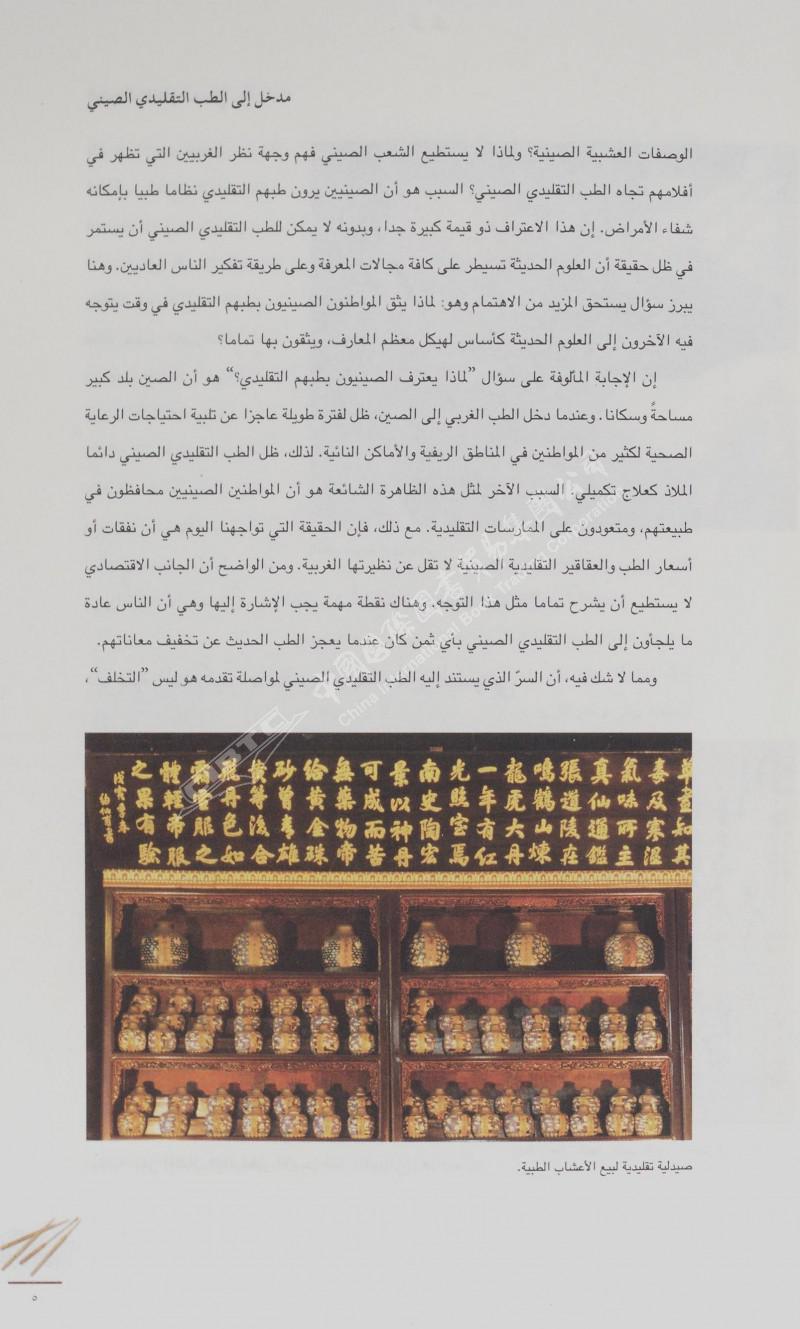 مدخل إلى الطب التقليدي الصيني
الوصفات العشبية الصينية؟ ولماذا لا يستطيع الشعب الصيني فهم وجهة نظر الغربيين التي تظهر في
أفلامهم تجاه الطب التقليدي الصيني؟ السبب هو أن الصينيين يرون طبهم التقليدي نظاما طبيا بإمكانه
شفاء الأمراض. إن هذا الاعتراف ذو قيمة كبيرة جدا، وبدونه لا يمكن للطب التقليدي الصيني أن يستمر
في ظل حقيقة أن العلوم الحديثة تسيطر على كافة مجالات المعرفة وعلى طريقة تفكير الناس العاديين. وهنا
يبرز سؤال يستحق المزيد من الاهتمام وهو: لماذا يثق المواطنون الصينيون بطبهم التقليدي في وقت يتوجه
فيه الآخرون إلى العلوم الحديثة كأساس لهيكل معظم المعارف، ويثقون بها تماما؟
إن الإجابة المألوفة على سؤال ”لماذا يعترف الصينيون بطبهم التقليدي؟“ هو أن الصين بلد كبير
مساحةً وسكانا. وعندما دخل الطب الغربي إلى الصين، ظل لفترة طويلة عاجزا عن تلبية احتياجات الرعاية
الصحية لكثير من المواطنين في المناطق الريفية والأماكن النائية. لذلك، ظل الطب التقليدي الصيني دائما
الملاذ كعلاج تكميلي. السبب الآخر لمثل هذه الظاهرة الشائعة هو أن المواطنين الصينيين محافظون في
طبيعتهم، ومتعودون على الممارسات التقليدية. مع ذلك، فإن الحقيقة التي تواجهنا اليوم هي أن نفقات أو
أسعار الطب والعقاقير التقليدية الصينية لا تقل عن نظيرتها الغربية. ومن الواضح أن الجانب الاقتصادي
لا يستطيع أن يشرح تماما مثل هذا التوجه. وهناك نقطة مهمة يجب الإشارة إليها وهي أن الناس عادة
ما يلجأون إلى الطب التقليدي الصيني بأي ثمن كان عندما يعجز الطب الحديث عن تخفيف معاناتهم.
ومما لا شك فيه، أن السرّ الذي يستند إليه الطب التقليدي الصيني لمواصلة تقدمه هو ليس ”التخلف“،
中国国际图书贸易集团公司
China International Book Trading Corporation
CIBTC
草盡知其
毒及寒溫
氣味所主
真仙通鑑
張道陵在
鳴鶴山煉
龍虎大丹
一年有紅
光照室焉
南史陶宏
景以神丹
可成而苦
無藥物帝
給黃金硃
砂曾青雄
黃等後合
飛丹色如
霜雪服之
體輕帝服
之果有驗
صيدلية تقليدية لبيع الأعشاب الطبية.
٥